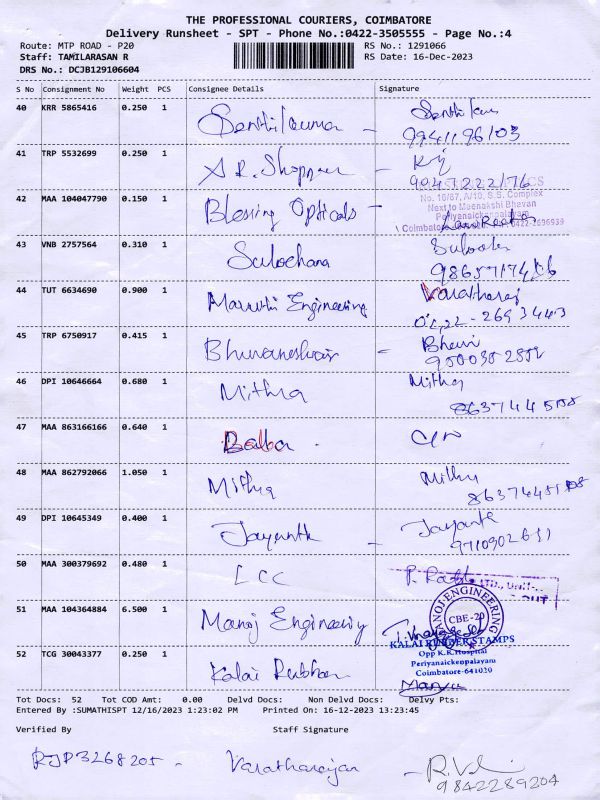 THE PROFESSIONAL COURIERS, COIMBATORE
Delivery Runsheet - SPT - Phone No.:0422-3505555 - Page No.:4
Route: MTP ROAD - P20 RS No.: 1291066
Staff: TAMILARASAN R RS Date: 16-Dec-2023
DRS No.: DCJB129106604
S No Consignment No Weight PCS Consignee Details Signature
40 KRR 5865416 0.250 1 Senthilkumar - Senthilkumar
9941196103
41 TRP 5532699 0.250 1 A.R. Shoppee -
9047222176
42 MAA 104047790 0.150 1 Blessing Opticals -
No. 16/87, A/10, S.S. Complex
Next to Meenakshi Bhavan
Periyanaickenpalayam
Coimbatore
43 VNB 2757564 0.310 1 Sulochana
44 TUT 6634690 0.900 1 Maruthi Engineering Varatharaj
0422-2693443
45 TRP 6750917 0.415 1 Bhuvaneshwari -
9500352852
46 DPI 10646664 0.680 1 Mithra Mithra
47 MAA 863166166 0.640 1 Balaa .
48 MAA 862792066 1.050 1 Mithra Mithra
49 DPI 10645349 0.400 1 Jayanth - Jayanth
50 MAA 300379692 0.480 1 LCC
51 MAA 104364884 6.500 1 Manoj Engineering
MANOJ ENGINEERING
CBE-20
52 TCG 30043377 0.250 1 Kalai Rubber
KALAI RUBBER STAMPS
Opp K.K.Hospital
Periyanaickenpalayam
Coimbatore-641020
Tot Docs: 52 Tot COD Amt: 0.00 Delvd Docs: Non Delvd Docs: Delvy Pts:
Entered By :SUMATHISPT 12/16/2023 1:23:02 PM Printed On: 16-12-2023 13:23:45
Verified By Staff Signature
RJP3268205 - Varatharajan -
9842289204